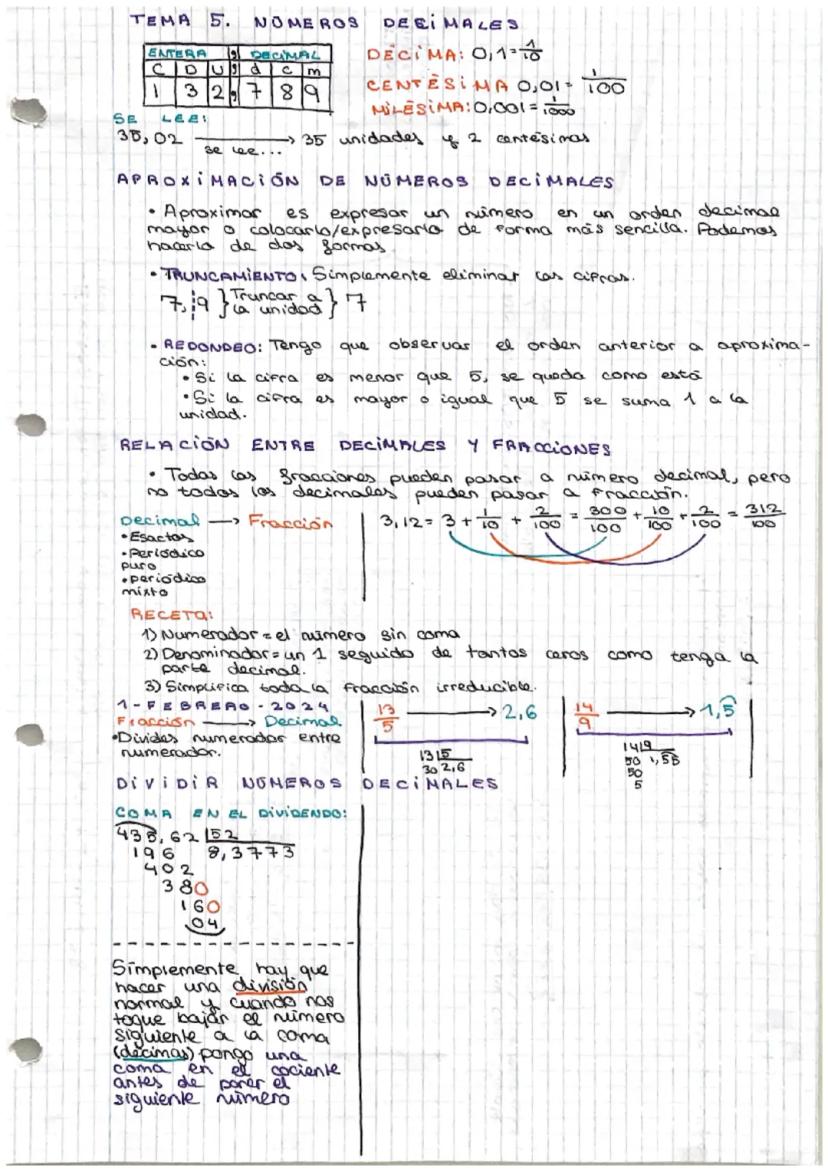 TEMA 5. NÚMEROS DECIMALES
ENTERA , DECIMAL
C D U , d c m
1 3 2 , 7 8 9
DÉCIMA: 0,1 = 1/10
CENTÉSIMA 0,01 = 1/100
MILÉSIMA: 0,001 = 1/1000
SE LEE:
35,02 → 35 unidades y 2 centésimas
se lee...
APROXIMACIÓN DE NÚMEROS DECIMALES
• Aproximar es expresar un número en un orden decimal
mayor o colocarlo/expresarlo de forma más sencilla. Podemos
hacerlo de dos formas.
• TRUNCAMIENTO: Simplemente eliminar las cifras.
7,9 } Truncar a la unidad } 7
• REDONDEO: Tengo que observar el orden anterior a aproxima-
ción:
• Si la cifra es menor que 5, se queda como está
• Si la cifra es mayor o igual que 5 se suma 1 a la
unidad.
RELACIÓN ENTRE DECIMALES Y FRACCIONES
• Todas las fracciones pueden pasar a número decimal, pero
no todos los decimales pueden pasar a fracción.
Decimal → Fracción
• Esactos
• Periódico
puro
• periódico
mixto
3,12 = 3 + 1/10 + 2/100 = 300/100 + 10/100 + 2/100 = 312/100
RECETA:
1) Numerador = el número sin coma
2) Denominador = un 1 seguido de tantos ceros como tenga la
parte decimal.
3) Simplifica toda la fracción irreducible.
1-FEBRERO-2024
Fracción → Decimal
• Divides numerador entre
numerador.
13/5 → 2,6
13 5
30 2,6
14/9 → 1,5
14 9
50 1,55
50
5
DIVIDIR NÚMEROS DECIMALES
COMA EN EL DIVIDENDO:
435,62 52
196 8,3773
402
380
160
04
Simplemente hay que
hacer una división
normal y cuando nos
toque bajar el número
siguiente a la coma
(décimas) pongo una
coma en el cociente
antes de poner el
siguiente número